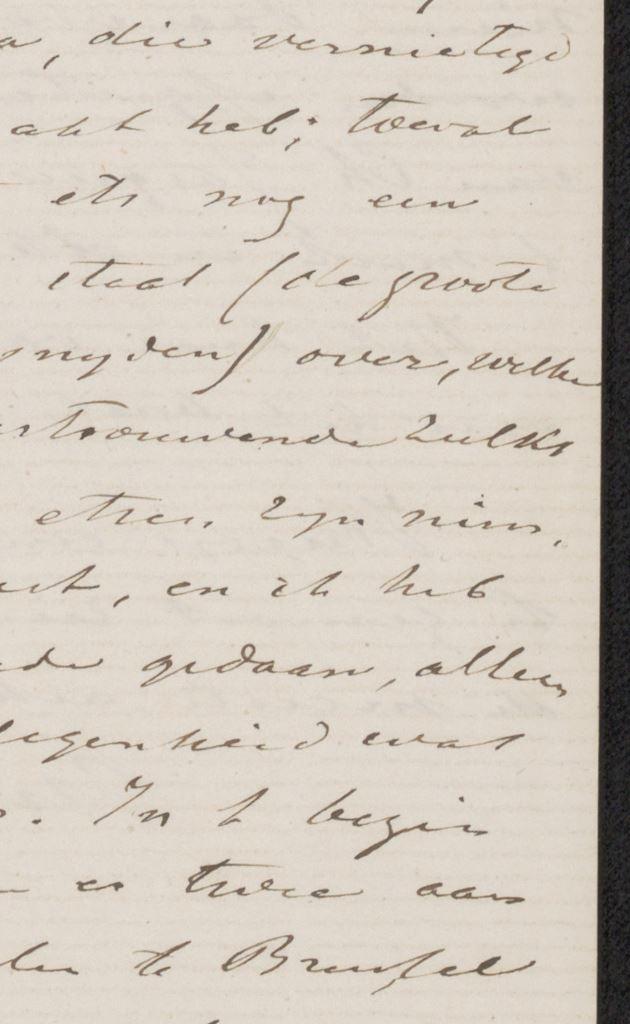 a, die vernietigd
akt heb; toeval
ets nog een
staat (de groote
snyden) over, welke
rtrouwende zulks
etsen. Zyn nieu,
, en ik heb
de gedaan, alleen
legenheid wat
. In t begin
er twee aan
len te Brussel